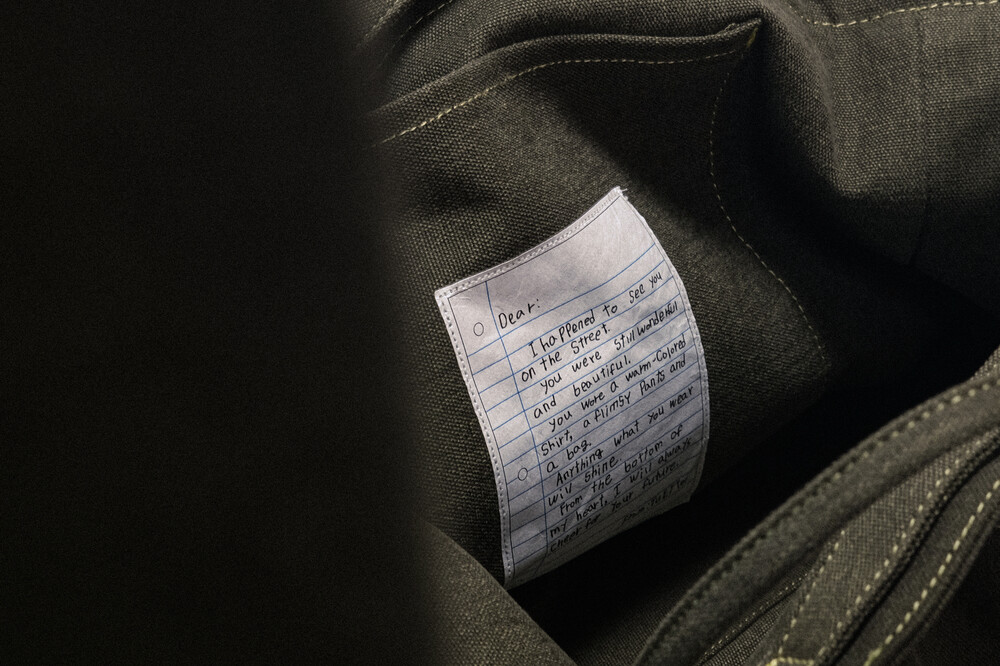 Dear:
I happened to see you
on the street.
you were still wonderful
and beautiful.
you wore a warm-colored
shirt, a flimsy pants and
a bag.
Anything what you wear
will shine.
From the bottom of
my heart, I will always
cheer for your future.